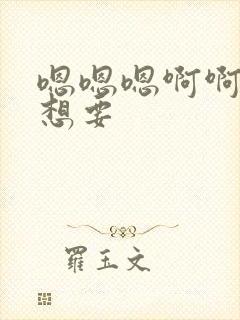 嗯嗯嗯啊啊
想要
羅玉文